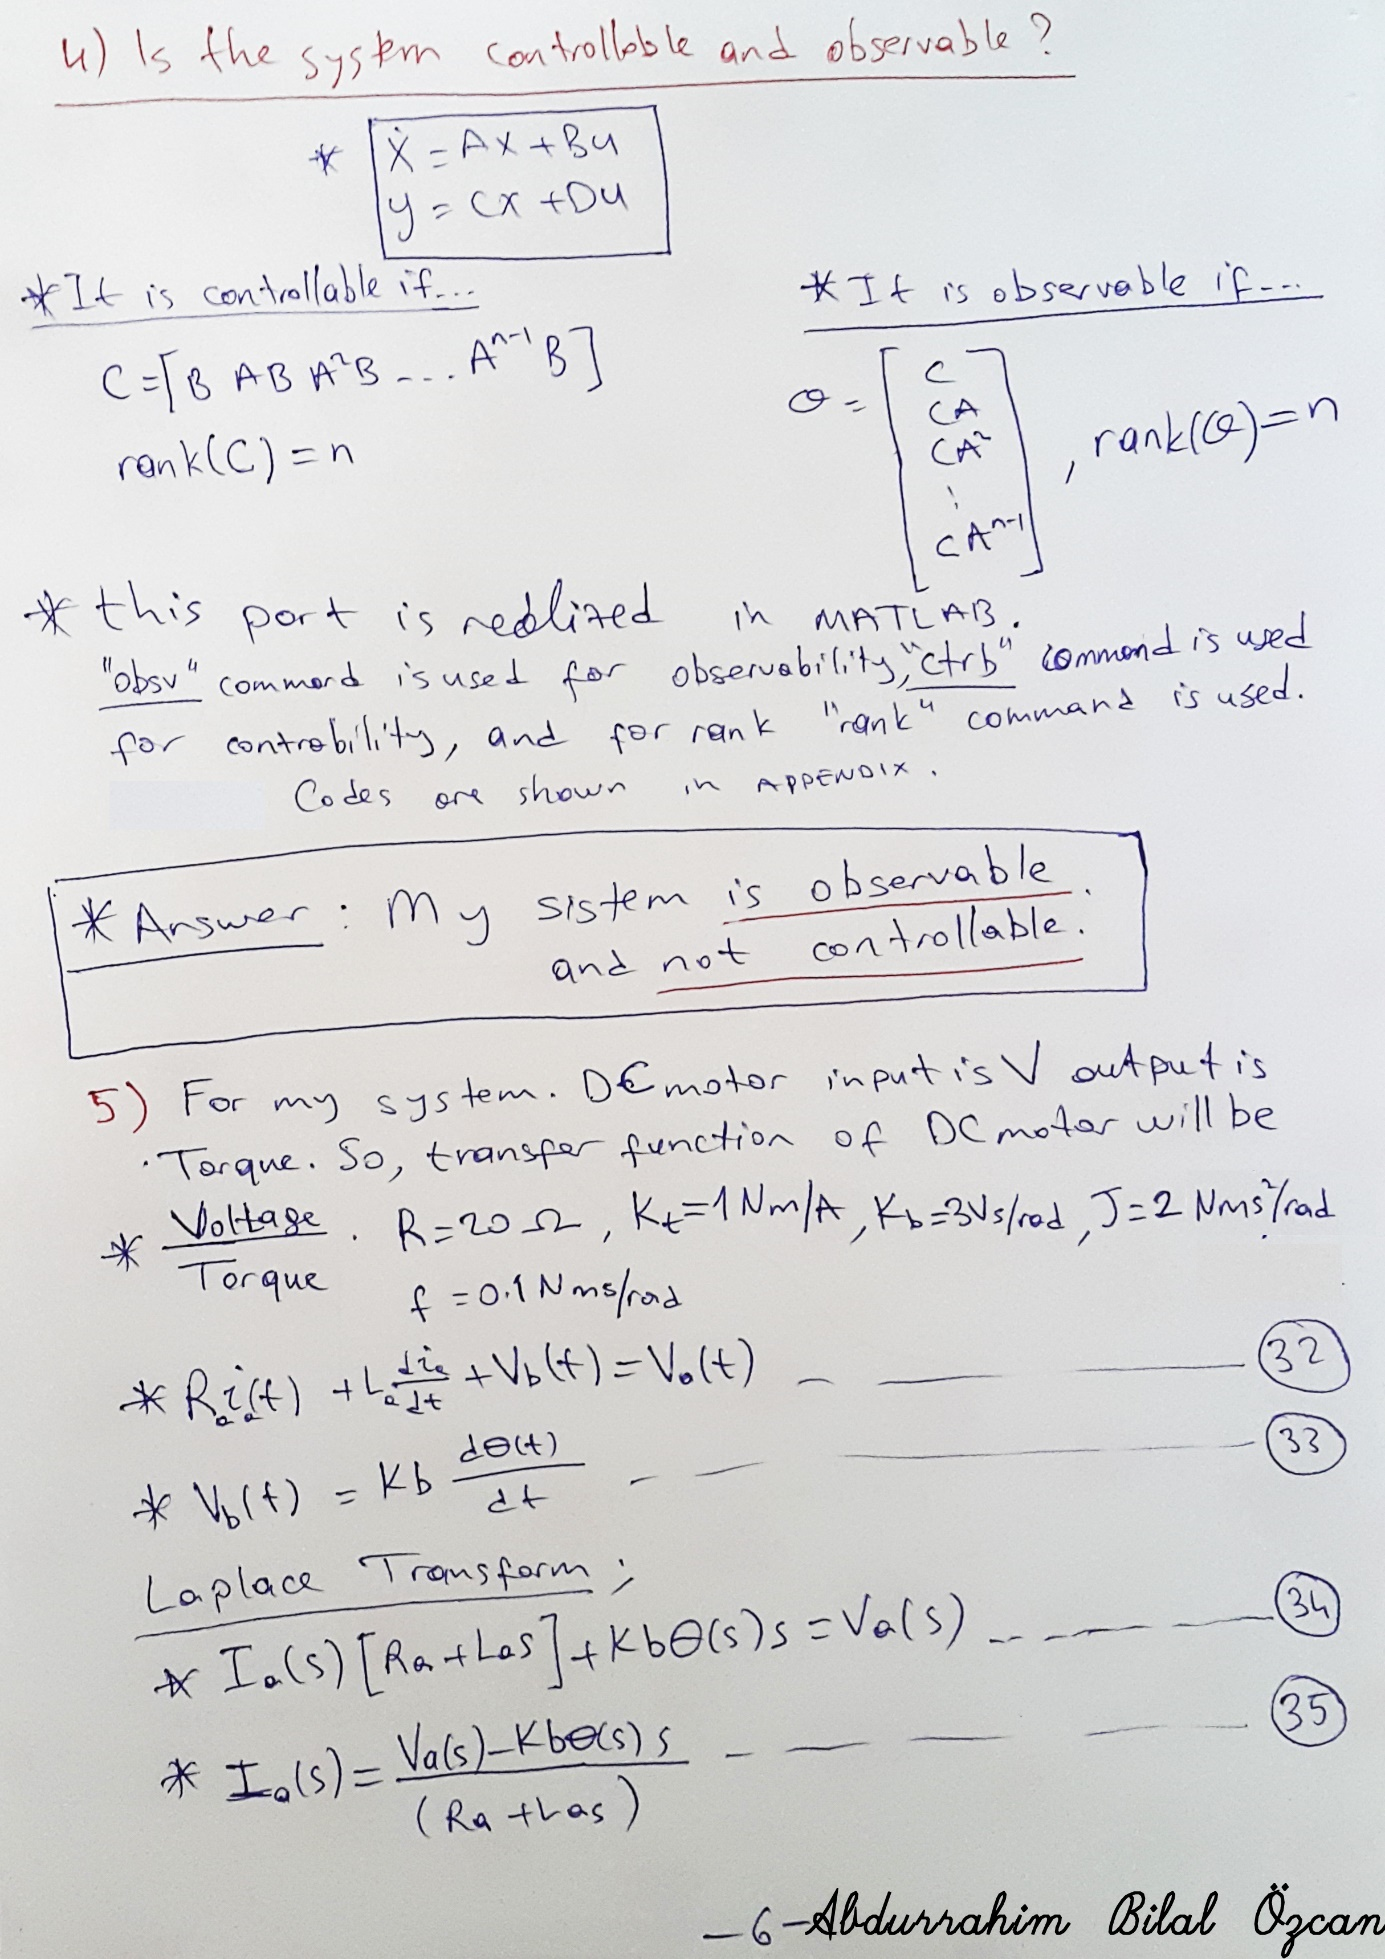 4) Is the system controllable and observable?
* Ẋ = AX + Bu
y = Cx + Du
* It is controllable if...
C = [B AB A²B ... Aⁿ⁻¹B]
rank(C) = n
* It is observable if...
O = [C
CA
CA²
⋮
CAⁿ⁻¹] , rank(O) = n
* this part is realized in MATLAB.
"obsv" command is used for observability, "ctrb" command is used
for controbility, and for rank "rank" command is used.
Codes are shown in APPENDIX.
* Answer : My sistem is observable
and not controllable.
5) For my system. DC motor input is V output is
Torque. So, transfer function of DC motor will be
* Voltage / Torque . R = 20 Ω , Kt = 1 Nm/A , Kb = 3Vs/rad , J = 2 Nms²/rad
f = 0.1 Nms/rad
* Ra ia(t) + La dia/dt + Vb(t) = Va(t) (32)
* Vb(t) = Kb dθ(t)/dt (33)
Laplace Transform ;
* Ia(s) [Ra + Las] + Kbθ(s)s = Va(s) (34)
* Ia(s) = Va(s) - Kbθ(s)s / (Ra + Las) (35)
- 6 - Abdurrahim Bilal Özcan